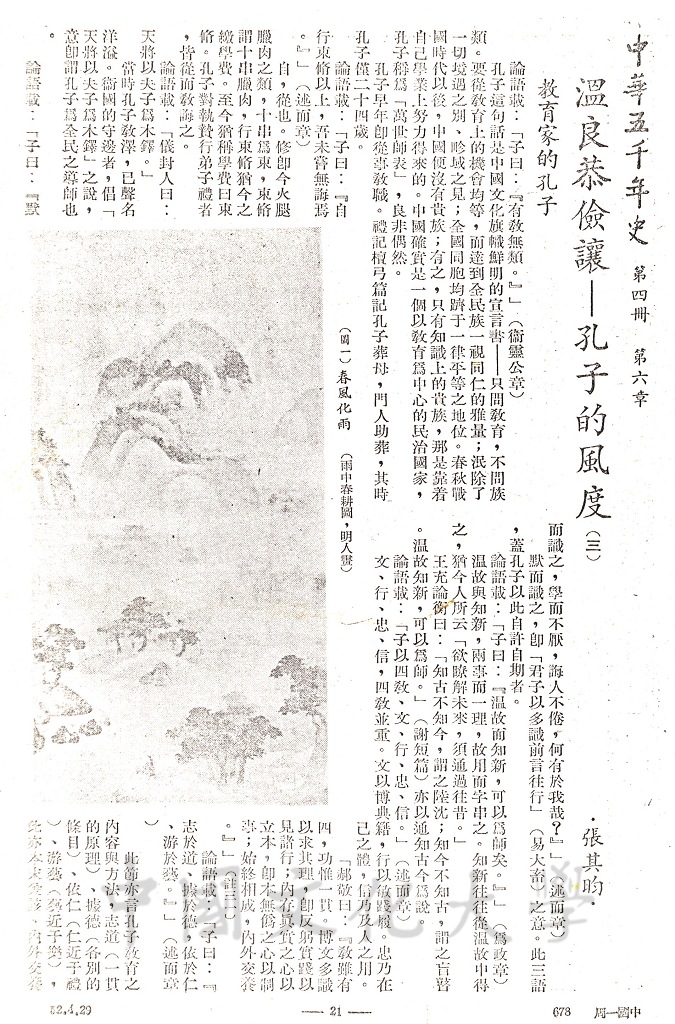 中華五千年史 第四冊 第六章
溫良恭儉讓——孔子的風度(三)
·張其昀·
教育家的孔子
論語載:「子曰:『有教無類。』」(衞靈公章)
孔子這句話是中國文化旗幟鮮明的宣言書——只問教育,不問族
類。要從教育上的機會均等,而達到全民族一視同仁的雅量;泯除了
一切境遇之別、畛域之見;全國同胞均躋于一律平等之地位。春秋戰
國時代以後,中國便沒有貴族;有之,只有知識上的貴族,那是靠着
自己學業上努力得來的。中國確實是一個以教育為中心的民治國家,
孔子稱爲「萬世師表」,良非偶然。
孔子早年卽從事敎職。禮記檀弓篇記孔子葬母,門人助葬,其時
孔子僅二十四歲。
論語載:「子曰:『自
行束脩以上,吾未嘗無誨焉
。』」(述而章)
自,從也。脩卽今火腿
臘肉之類,十串爲束,束脩
謂十串臘肉,行束脩猶今之
繳學費。至今猶稱學費曰束
脩。孔子對執贄行弟子禮者
,皆從而敎誨之。
論語載:「儀封人曰:
天將以夫子爲木鐸。」
當時孔子敎澤,已聲名
洋溢。衞國的守邊者,倡「
天將以夫子爲木鐸」之說,
意卽謂孔子爲全民之導師也
。
論語載:「子曰:『默
(圖一)春風化雨 (雨中春耕圖,明人畫)
而識之,學而不厭,誨人不倦,何有於我哉?』」(述而章)
默而識之,卽「君子以多識前言往行」(易大畜)之意。此三語
,蓋孔子以此自許自期者。
論語載:「子曰:『温故而知新,可以爲師矣。』」(爲政章)
温故與知新,兩事而一理,故用而字串之。知新往往從温故中得
之,猶今人所云「欲瞭解未來,須通過往昔。」
王充論衡曰:「知古不知今,謂之陸沈;知今不知古,謂之盲瞽
。温故知新,可以爲師。」(謝短篇)亦以通知古今爲說。
論語載:「子以四敎、文、行、忠、信。」(述而章)
文、行、忠、信,四敎並重。文以博典籍,行以敏踐履。忠乃在
己之體,信乃及人之用。
「郝敬曰:『敎雖有
四,功惟一貫。博文多識
以求其理,卽反躬實踐以
見諸行;內存眞實之心以
立本,卽本無僞之心以制
事;始終相成,內外交養
。』」(註三一)
論語載:「子曰:『
志於道、據於德,依於仁
、游於藝。』」(述而章
)
此節亦言孔子敎育之
內容與方法,志道(一貫
的原理)、據德(各別的
條目)、依仁(仁近于禮
)、游藝(藝近于樂),
此亦本末兼該、內外交養
中國文化大學
52.4.29
— 21 —
678 中國一周